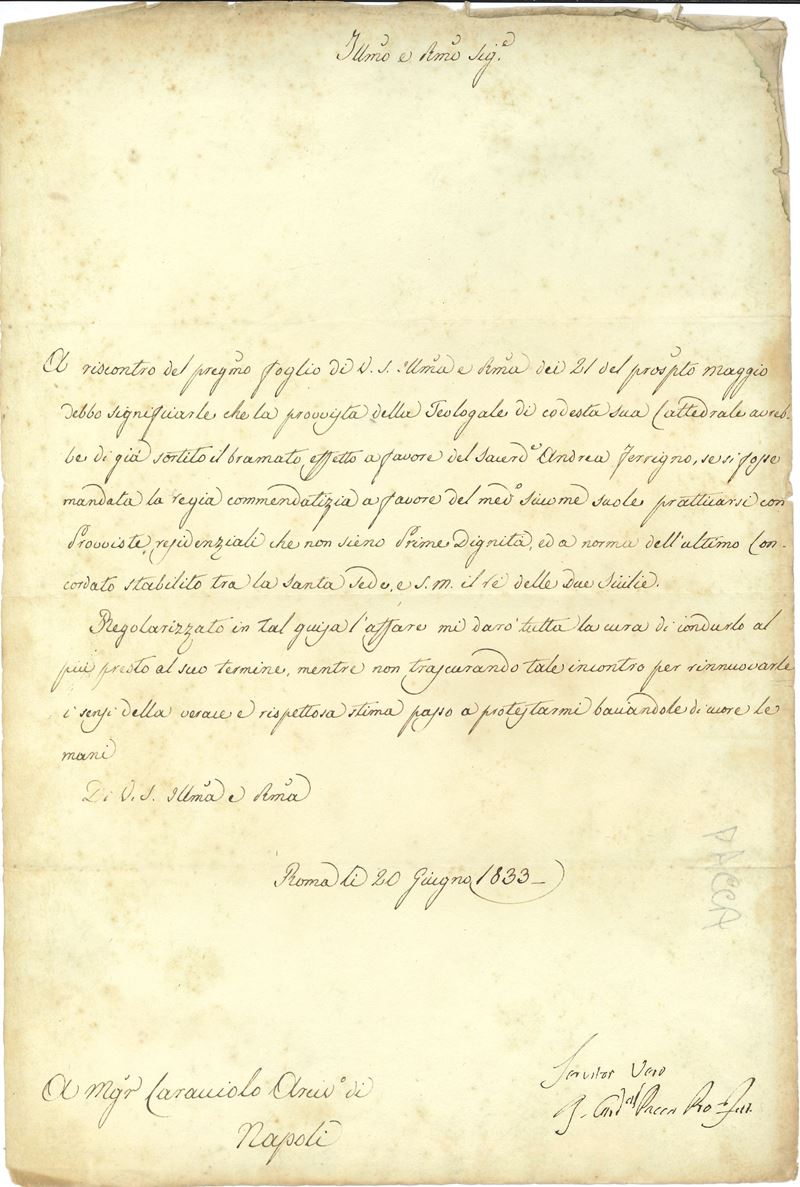 Illmo e Rmo Sige
A riscontro del pregmo foglio di V. S. Illma e Rma dei 21 del prosspto maggio
debbo significarle che la provvista della Teologale di codesta sua Cattedrale avreb-
be di già sortito il bramato effetto a favore del Sacerdo Andrea Ferrigno, se si fosse
mandata la regia commendatizia a favore del medo siccome suole pratticarsi con
Provviste residenziali che non sieno Prime Dignità, ed a norma dell'ultimo Con-
cordato stabilito tra la Santa Sede, e S. M. il re delle Due Sicilie.
Regolarizzato in tal guisa l'affare mi darò tutta la cura di condurlo al
più presto al suo termine, mentre non trascurando tale incontro per rinnuovarle
i sensi della verace e rispettosa stima passo a protestarmi baciandole di cuore le
mani
Di V. S. Illma e Rma
Roma li 20 Giugno 1833_
PACCA
Servitor Vero
B. Cardal Pacca Pro-Dat.
A Mgr Caracciolo Arcivo di
Napoli